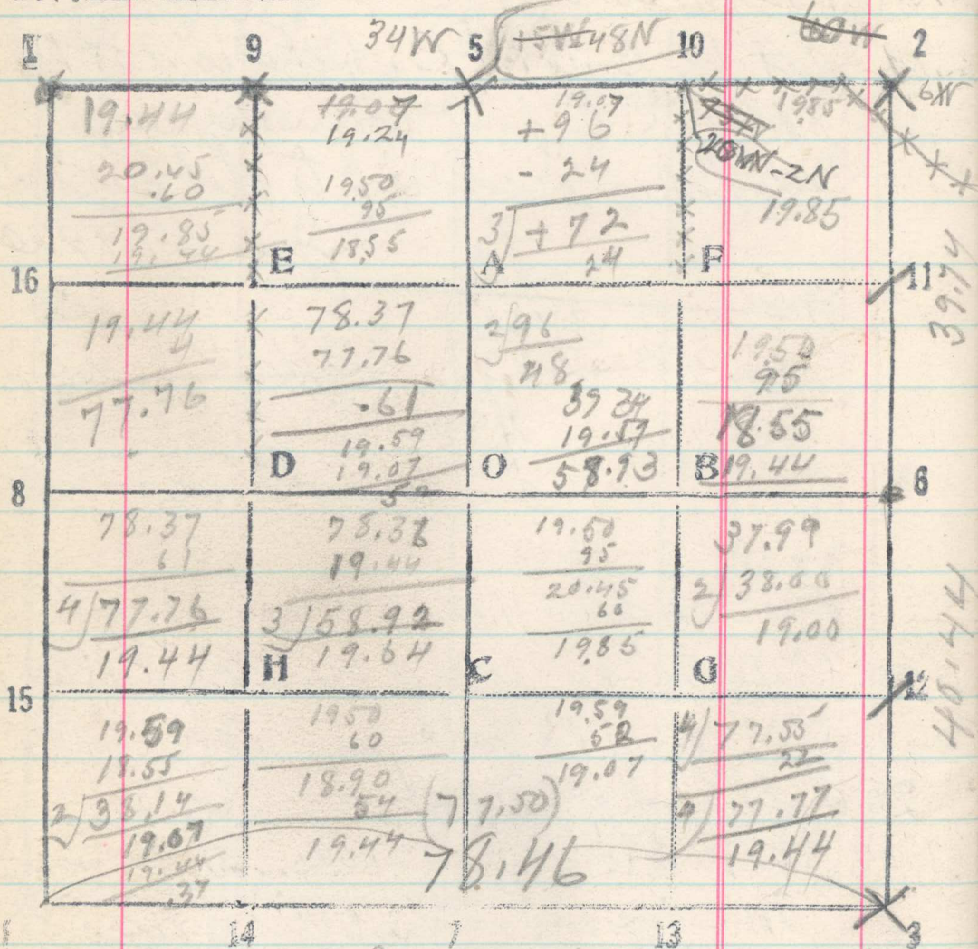 1 9 34W 5 +5W 48N 10 60W 2
6W
19.44
20.45
.60
19.85
19.44
19.07
19.24
19.50
95
18.55
E
19.07
+96
- 24
3) +72
24
A
1985
20WN-2N
19.85
F
16 11
39.74
19.44
4
77.76
78.37
77.76
.61
19.59
19.07
52
D
2)96
48
39 34
58.93
O
19.50
95
18.55
19.44
B
8 6
78.37
61
4)77.76
19.44
19.44
3)58.92
19.64
H
19.50
95
20.45
60
19.85
C
37.99
2)38.00
19.00
G
40.44
15 12
19.59
18.55
2)38,14
19.07
19.44
.37
1950
60
18.90
54
19.44
19.59
52
19.07
4)77.55
22
4)77.77
19.44
(77.50)
78.46
14 7 13 3